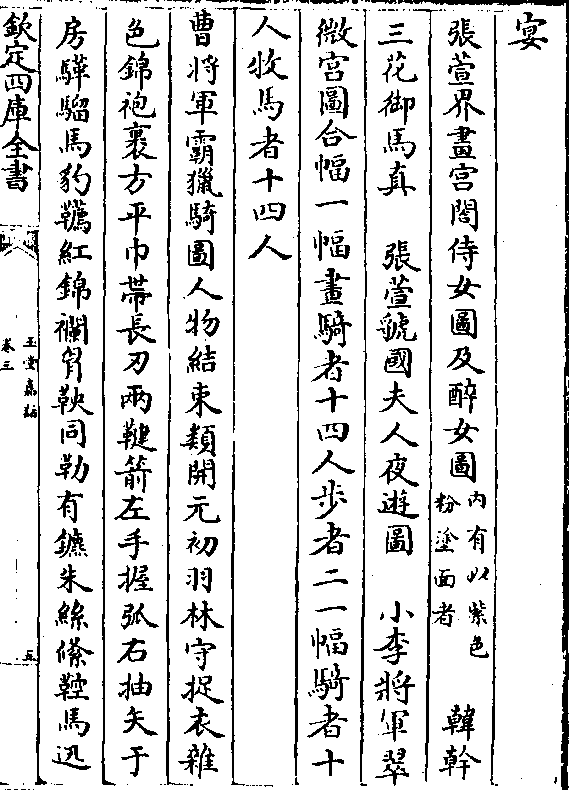 宴
張萱界畫宫閤侍女圖及醉女圖内有以紫色粉塗面者 韓幹
三花御馬真 張萱虢國夫人夜遊圖 小李將軍翠
微宫圖合幅一幅畫騎者十四人步者二一幅騎者十
人牧馬者十四人
曹將軍霸獵騎圖人物結束類開元初羽林守捉衣雜
色錦袍裹方平巾帶長刀兩鞬箭左手握弧右抽矢于
房騲騮馬豹韉紅錦襴䏍鞅同勒有鑣朱絲絛鞚馬迅
欽定四庫全書
玉堂嘉話
卷三
五